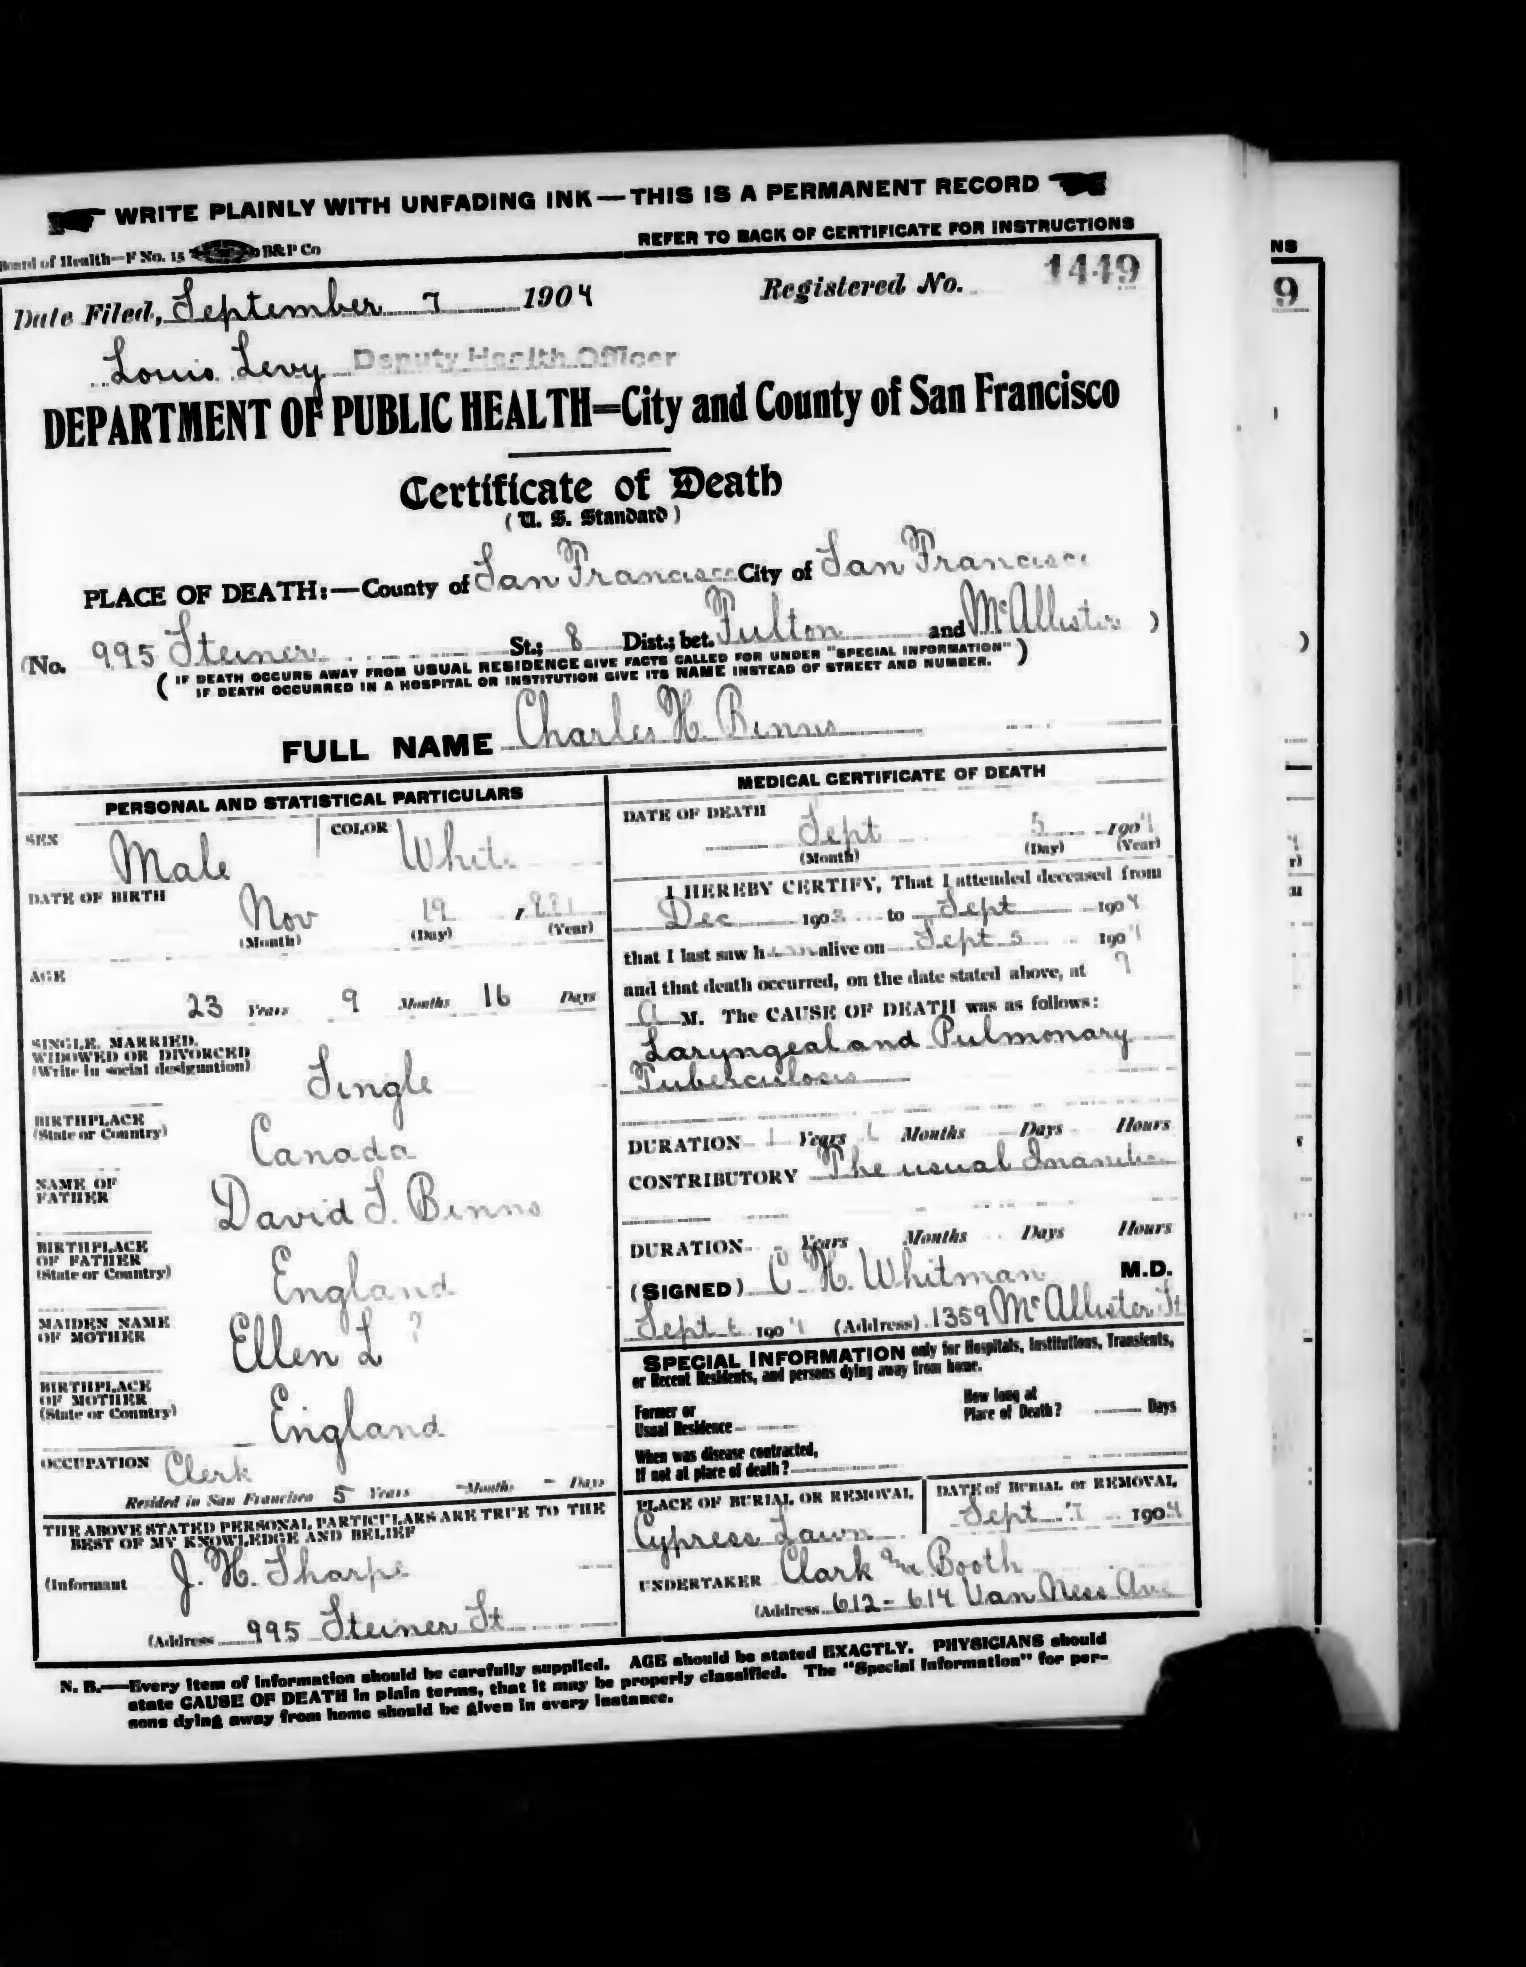 WRITE PLAINLY WITH UNFADING INK—THIS IS A PERMANENT RECORD
Board of Health—F No. 15 B&P Co
REFER TO BACK OF CERTIFICATE FOR INSTRUCTIONS
Date Filed, September 7 1904 Registered No. 1449
Louis Levy Deputy Health Officer
DEPARTMENT OF PUBLIC HEALTH=City and County of San Francisco
Certificate of Death
(U. S. Standard)
PLACE OF DEATH:—County of San Francisco City of San Francisco
(No. 995 Steiner St.; 8 Dist.; bet. Fulton and McAllister )
( IF DEATH OCCURS AWAY FROM USUAL RESIDENCE GIVE FACTS CALLED FOR UNDER "SPECIAL INFORMATION" )
IF DEATH OCCURRED IN A HOSPITAL OR INSTITUTION GIVE ITS NAME INSTEAD OF STREET AND NUMBER.
FULL NAME Charles H. Binns
PERSONAL AND STATISTICAL PARTICULARS
SEX Male COLOR White
DATE OF BIRTH
Nov 19 , 881
(Month) (Day) (Year)
AGE
23 Years 9 Months 16 Days
SINGLE, MARRIED,
WIDOWED OR DIVORCED
(Write in social designation)
Single
BIRTHPLACE
(State or Country)
Canada
NAME OF
FATHER
David S. Binns
BIRTHPLACE
OF FATHER
(State or Country)
England
MAIDEN NAME
OF MOTHER
Ellen L ?
BIRTHPLACE
OF MOTHER
(State or Country)
England
OCCUPATION Clerk
Resided in San Francisco 5 Years - Months - Days
THE ABOVE STATED PERSONAL PARTICULARS ARE TRUE TO THE
BEST OF MY KNOWLEDGE AND BELIEF
(Informant J. H. Sharpe
(Address 995 Steiner St
MEDICAL CERTIFICATE OF DEATH
DATE OF DEATH
Sept 5 1904
(Month) (Day) (Year)
I HEREBY CERTIFY, That I attended deceased from
Dec 1903 to Sept 1904
that I last saw him alive on Sept 5 1904
and that death occurred, on the date stated above, at 9
a M. The CAUSE OF DEATH was as follows:
Laryngeal and Pulmonary
Tuberculosis
DURATION 1 Years Months Days Hours
CONTRIBUTORY The usual Inanition
DURATION Years Months Days Hours
(SIGNED) C. H. Whitman M.D.
Sept 6 1904 (Address) 1359 McAllister St
SPECIAL INFORMATION only for Hospitals, Institutions, Transients,
or Recent Residents, and persons dying away from home.
Former or
Usual Residence
How long at
Place of Death? Days
When was disease contracted,
If not at place of death?
PLACE OF BURIAL OR REMOVAL
Cypress Lawn
DATE of BURIAL or REMOVAL
Sept 7 1904
UNDERTAKER Clark & Booth
(Address 612-614 Van Ness Ave
N. B.—Every item of information should be carefully supplied. AGE should be stated EXACTLY. PHYSICIANS should
state CAUSE OF DEATH in plain terms, that it may be properly classified. The "Special Information" for per-
sons dying away from home should be given in every instance.
NS
9
)